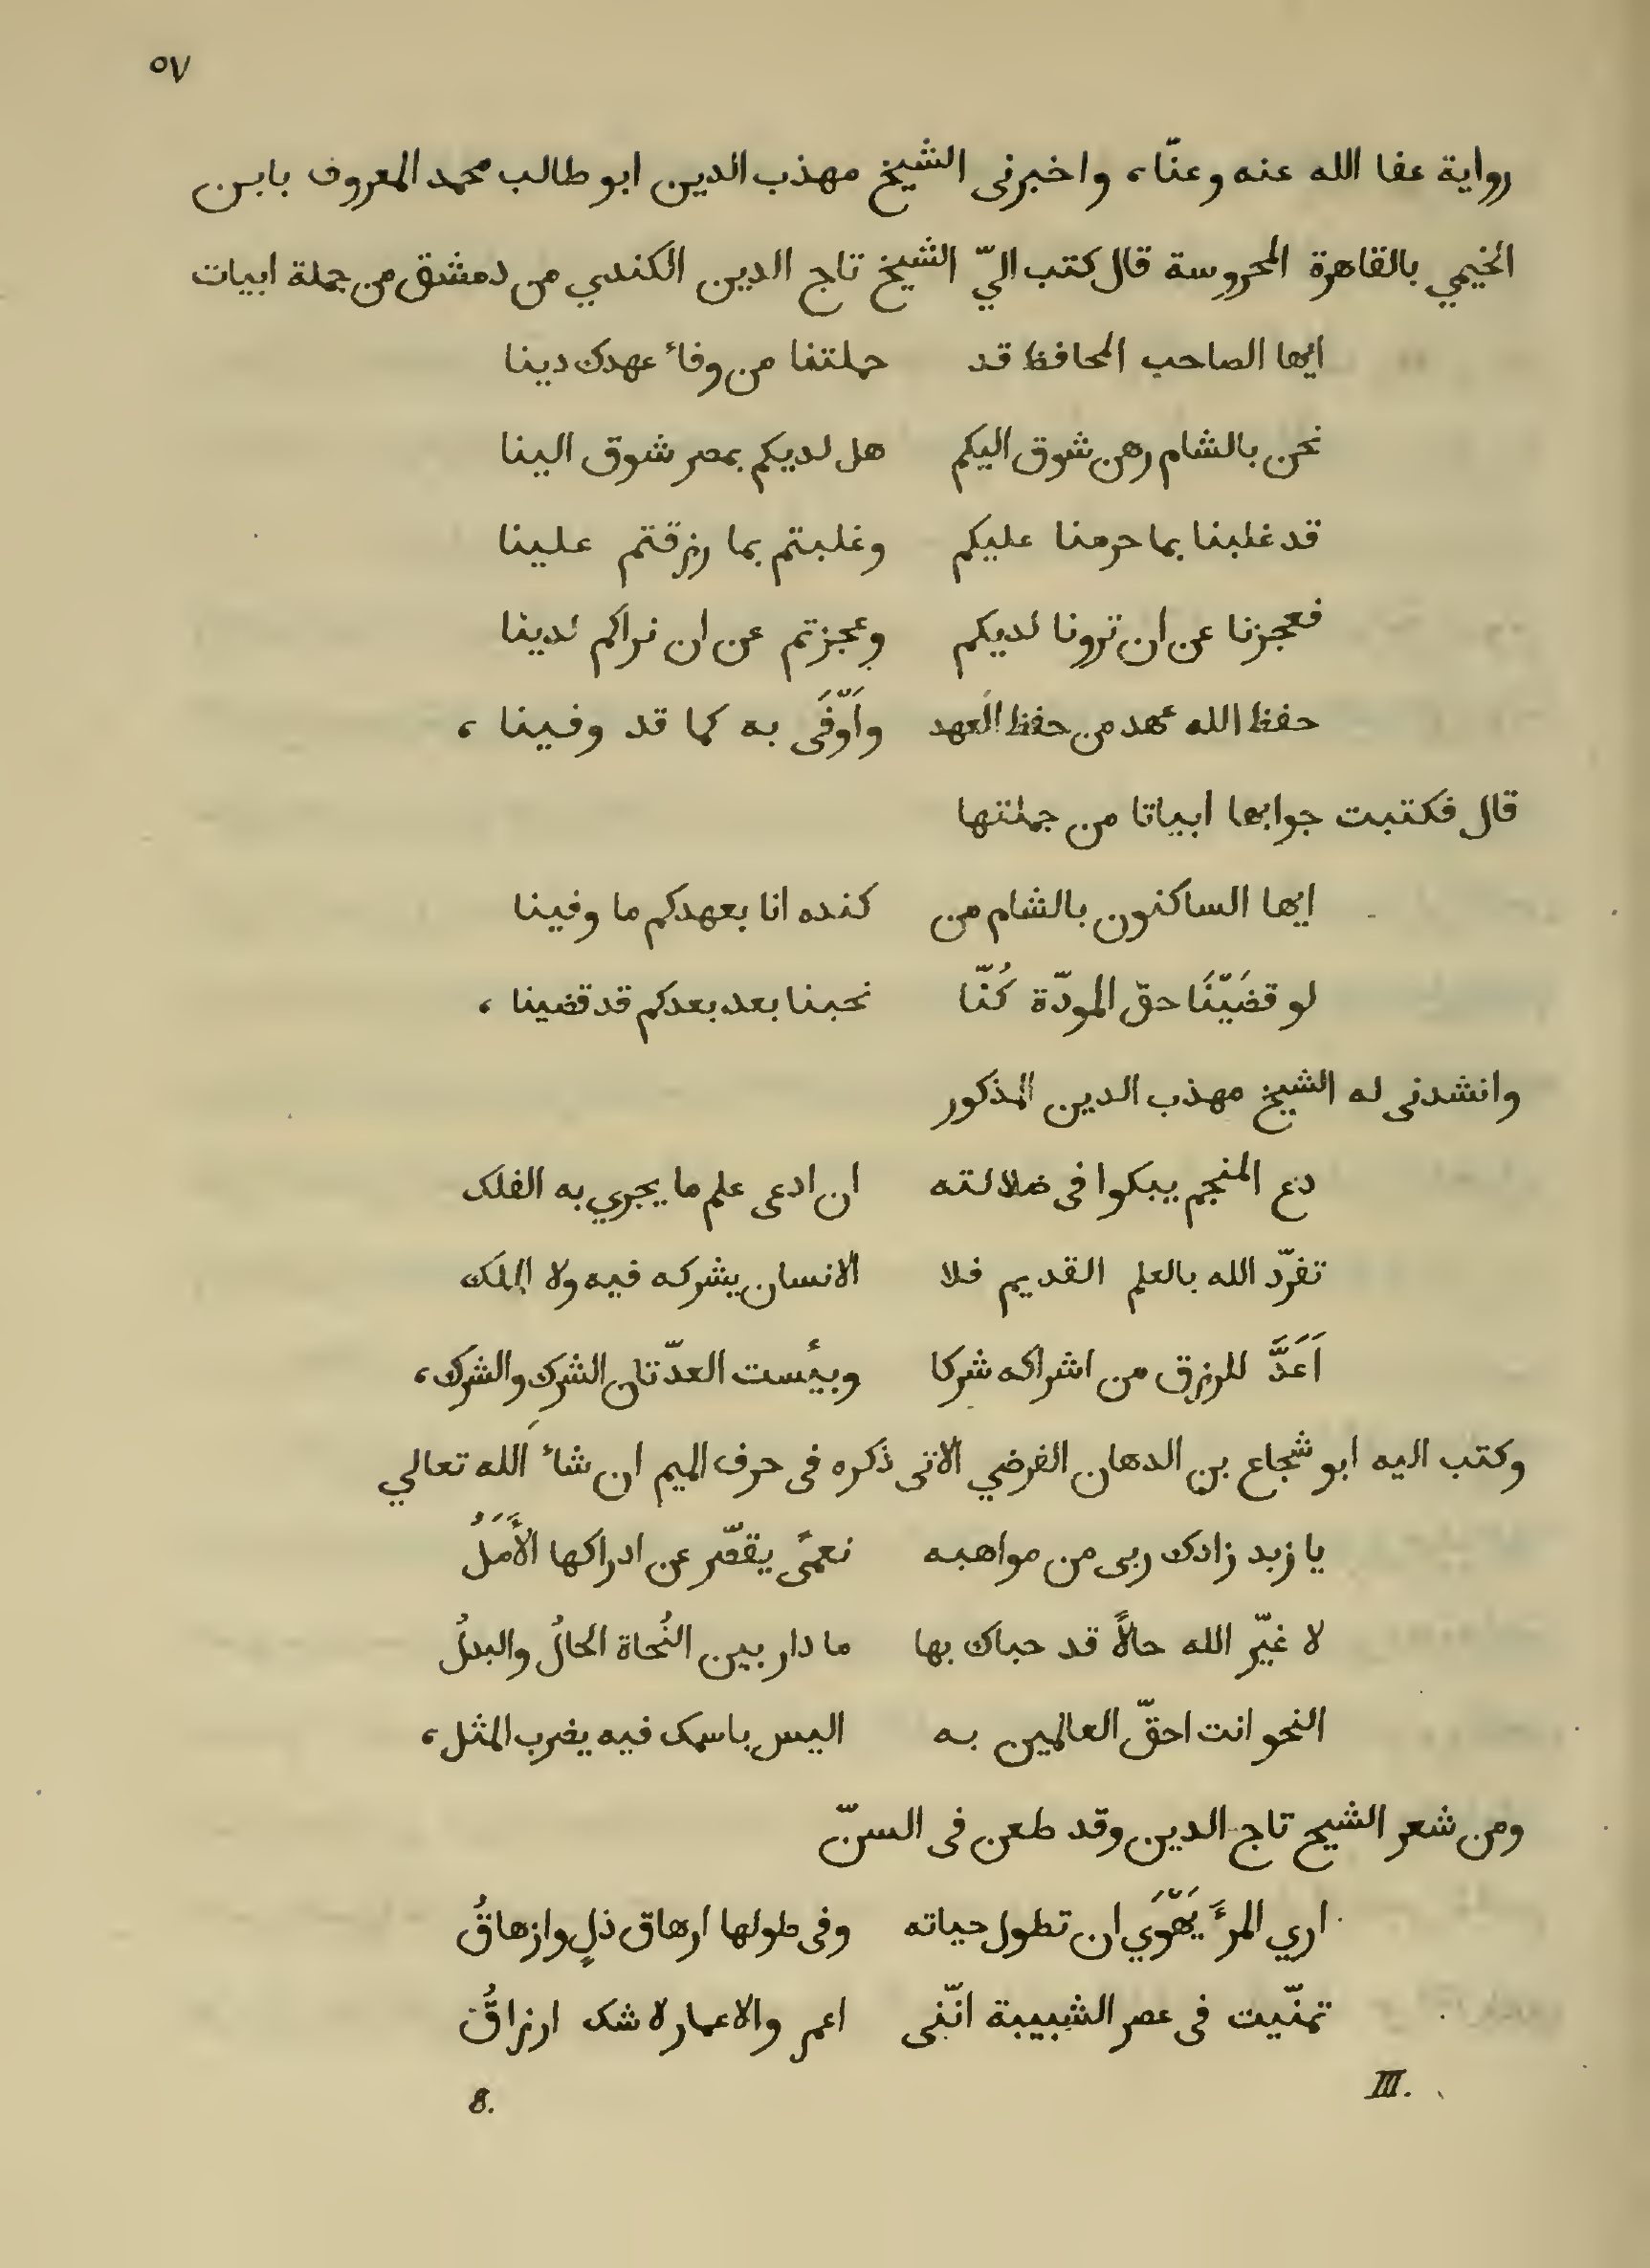 ٥٧
رواية عفا الله عنه وعنّا، واخبرنى الشيخ مهذب الدين ابو طالب محمد المعروف بابن
الخيمي بالقاهرة المحروسة قال كتب اليّ الشيخ تاج الدين الكندي من دمشق من جملة ابيات
ايها الصاحب المحافظ قد حملتنا من وفاء عهدك دينا
نحن بالشام رهن شوق اليكم هل لديكم بمصر شوق الينا
قد غلبنا بما حرمنا عليكم وغلبتم بما رزقتم علينا
فعجزنا عن ان ترونا لديكم وعجزتم عن ان نراكم لدينا
حفظ الله عهد من حفظ العهد واَوّفَى به كما قد وفينا ،
قال فكتبت جوابها ابياتا من جملتها
ايها الساكنون بالشام من كنده انا بعهدكم ما وفينا
لو قضَيّنَا حق المودّة كُنّا نحبنا بعد بعدكم قد قضينا ،
وانشدنى له الشيخ مهذب الدين المذكور
دع المنجم يبكوا فى ضلالته ان ادعى علم ما يجري به الفلك
تفرّد الله بالعلم القديم فلا الانسان يشركه فيه ولا الملك
اَعَدَّ للرزق من اشراكه شركا وبئست العدّتان الشرك والشرك،
وكتب اليه ابو شجاع بن الدهان الفرضي الاتى ذكره فى حرف الميم ان شاء الله تعالي
يا زيد زادك ربى من مواهبه نعمًى يقصّر عن ادراكها الأَمَلُ
لا غيّر الله حالاً قد حباك بها ما دار بين النُحاة الحالُ والبدلُ
النحو انت احقّ العالمين به اليس باسمك فيه يضرب المثل،
ومن شعر الشيخ تاج الدين وقد طعن فى السنّ
اري المرءَ يَهّوَي ان تطول حياته وفى طولها ارهاق ذلٍ وازهاقُ
تمنّيت فى عصر الشبيبة انّنى اعمر والاعمار لا شك ارزاقُ
III. 8.